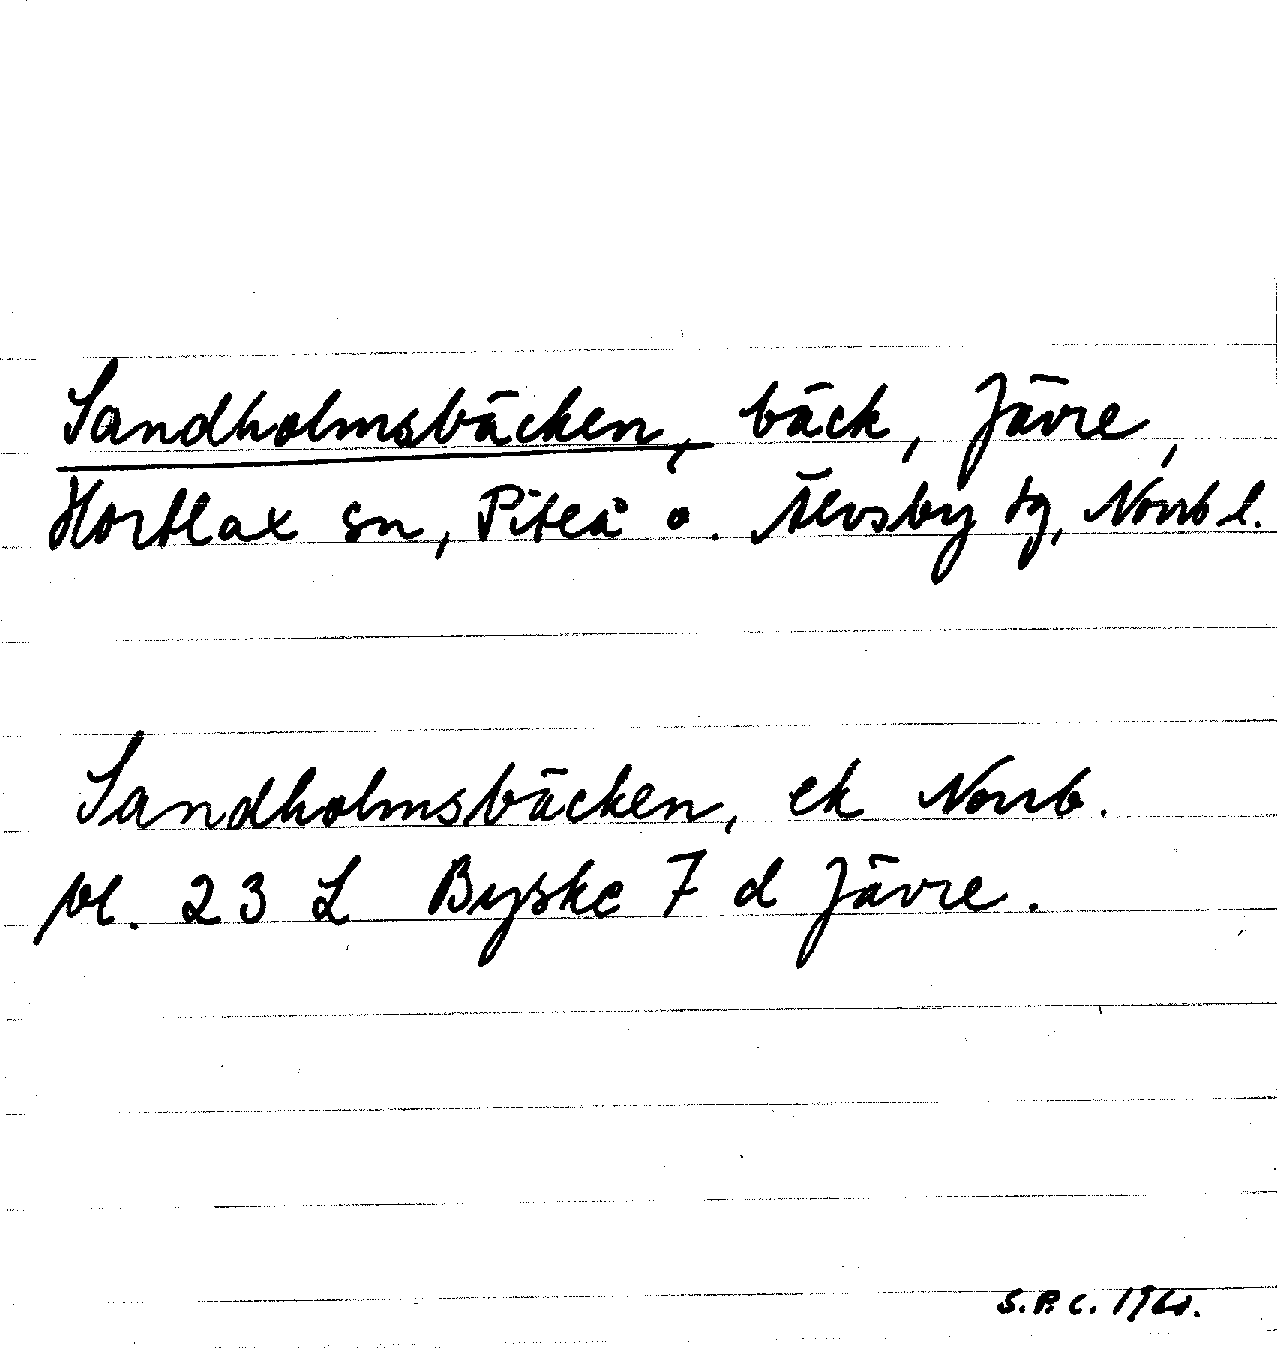 Sandholmsbäcken, bäck, Jävre,
Hortlax sn, Piteå o. Älvsby tg, Norrb l.
Sandholmsbäcken, ek Norrb.
bl. 23 L Byske 7 d Jävre.
S.P.C. 1960.